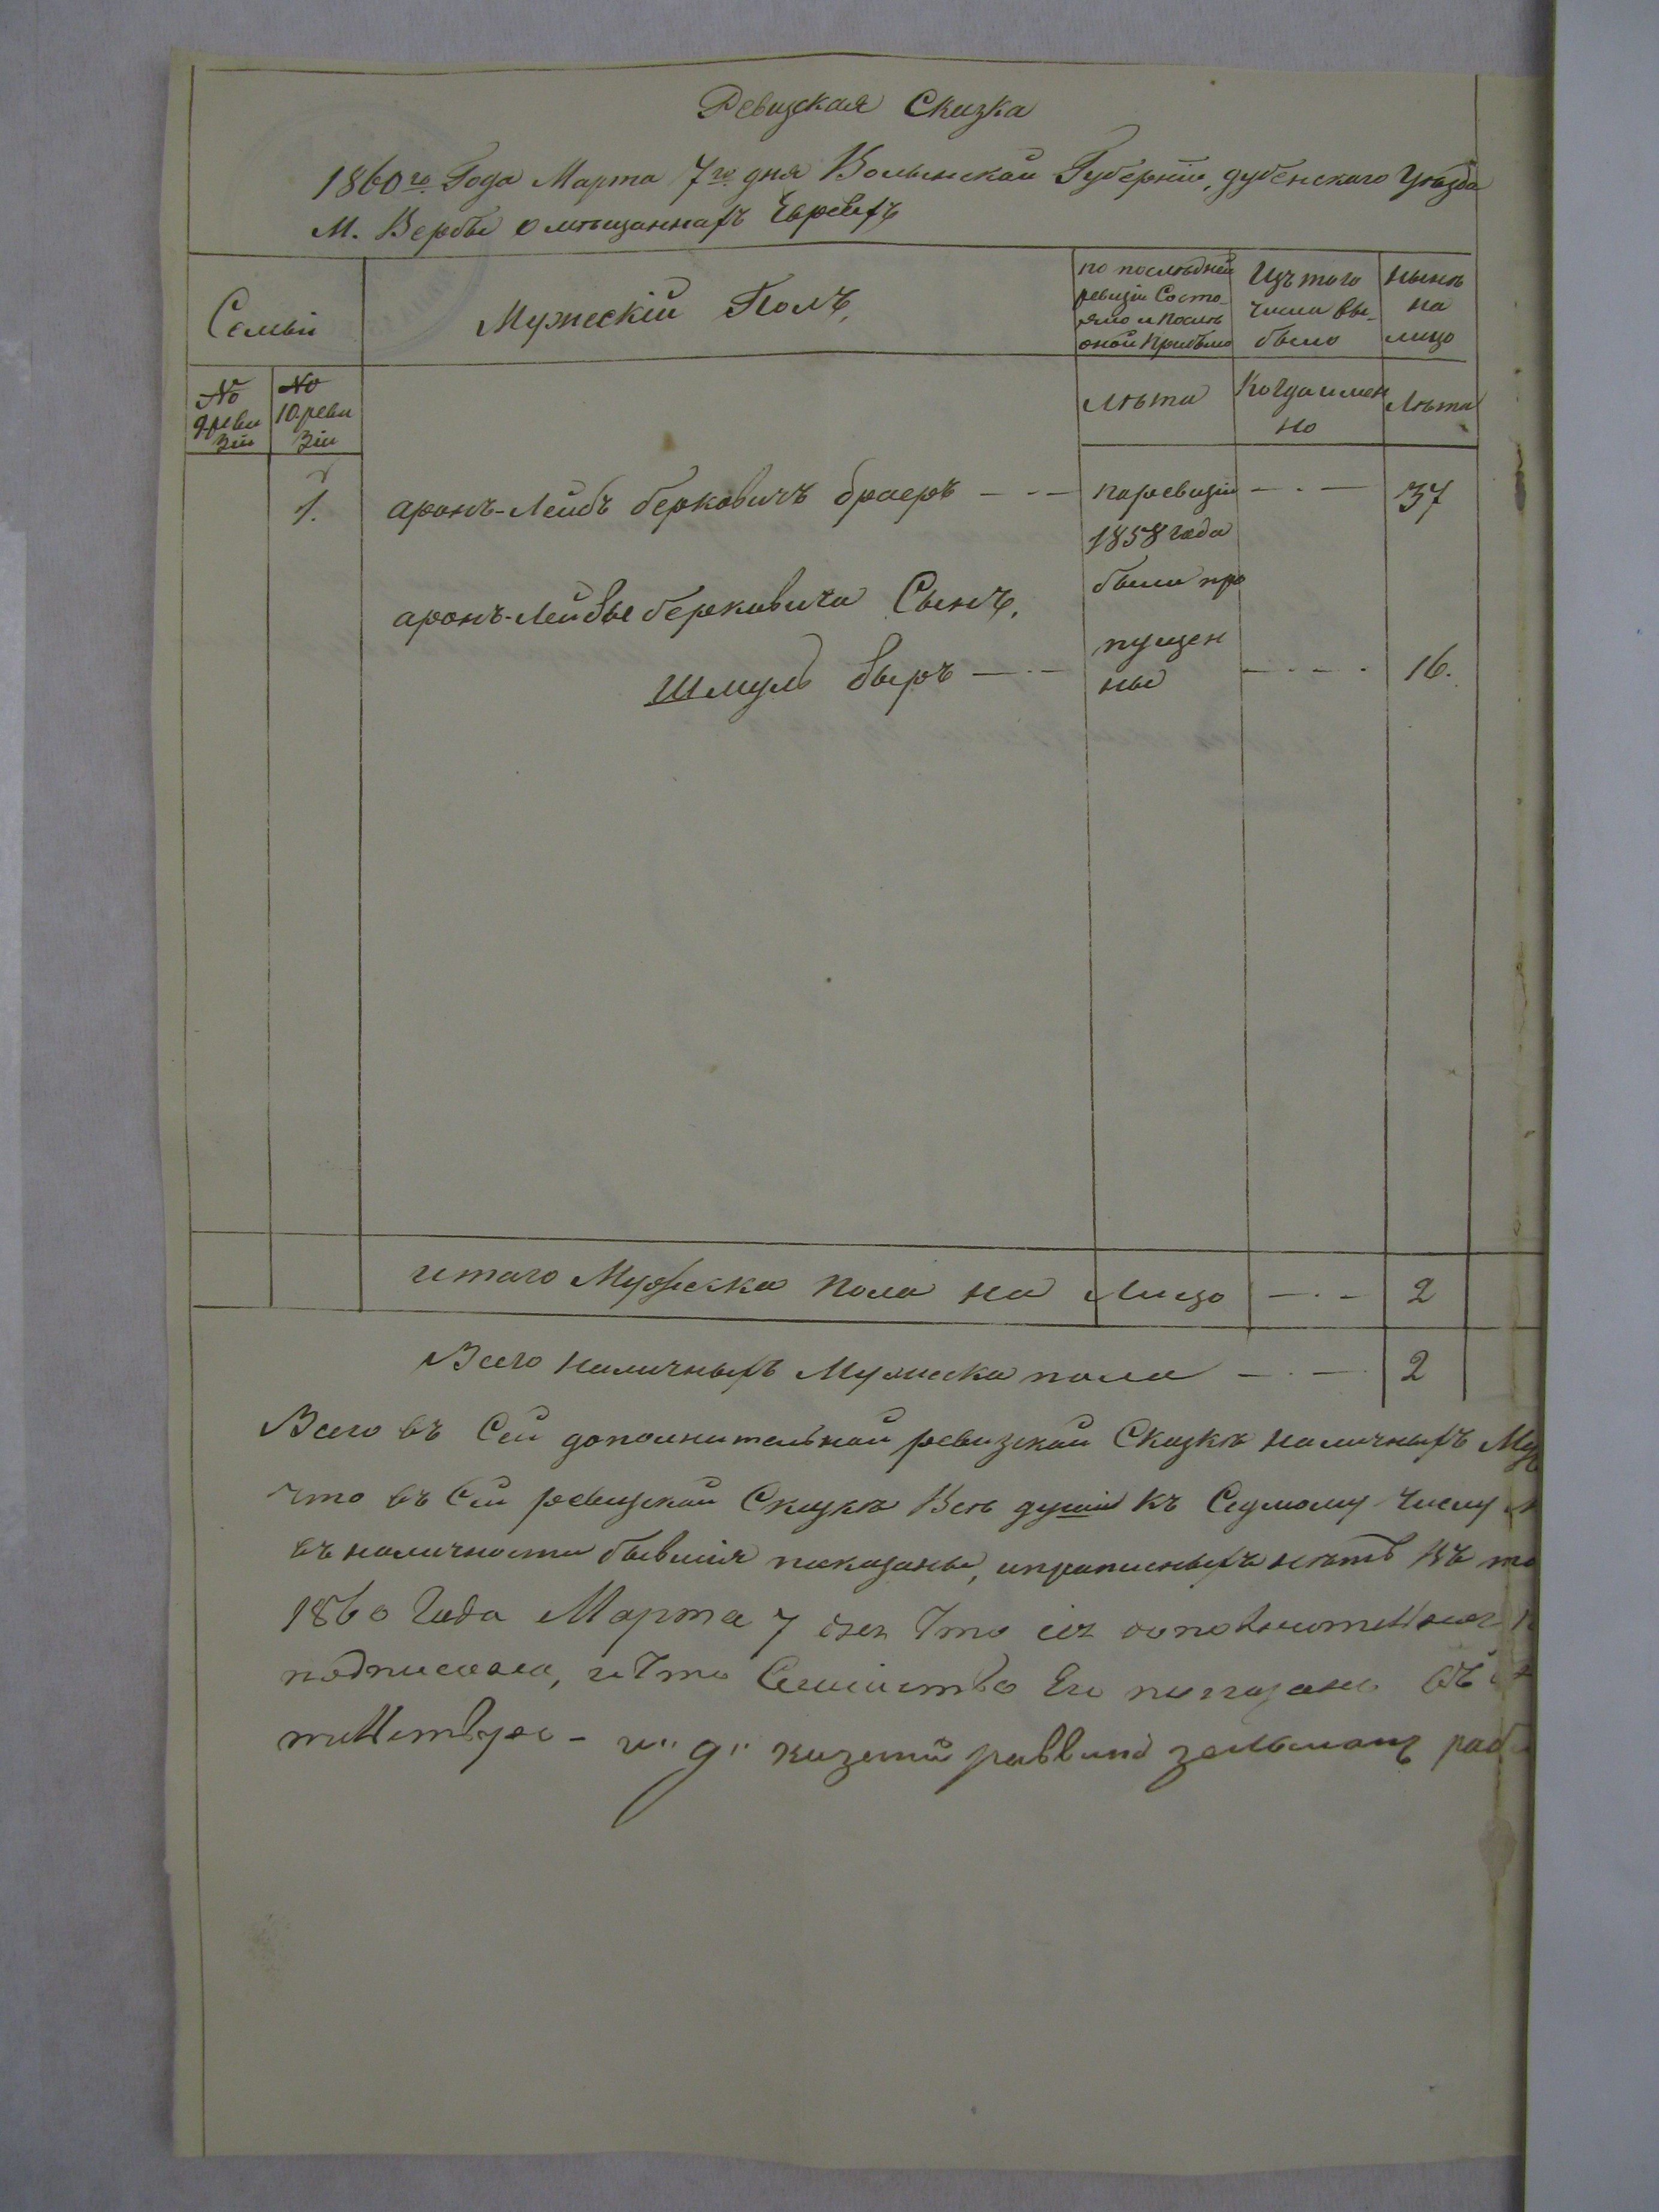 Ревизская Сказка
1860го Года Марта 7го дня Волынской Губернии, дубенского Уезда
М. Вербы о мѣщаннахъ Евреяхъ
Семьи
Мужескій Полъ,
по послѣдней ревизіи Состояло и послѣ оной прибыло
Изъ того числа выбыло
Нынѣ на лицо
№ 9 ревизіи
№ 10 ревизіи
Лѣта
Когда именно
Лѣта
1. аронъ-Лейбъ берковичъ браеръ — · — по ревизіи — · — 37
1858 года
были про
аронъ-Лейбы берковича Сынъ,
пущен
Шмуль — · — ны — · — · 16.
итаго Мужеска Пола на Лицо — · — 2
Всего наличныхъ Мужеска пола — · — 2
Всего въ Сей дополнительной ревизской Сказкѣ наличныхъ
что въ Сей ревизской Сказкѣ Всѣ души къ Седмому числу
въ наличности бывшія показаны, и прописныхъ нѣтъ Въ
1860 Года Марта 7 дня Что сія
подписала, и что Семейство Его показано
и" д" казений раввинъ